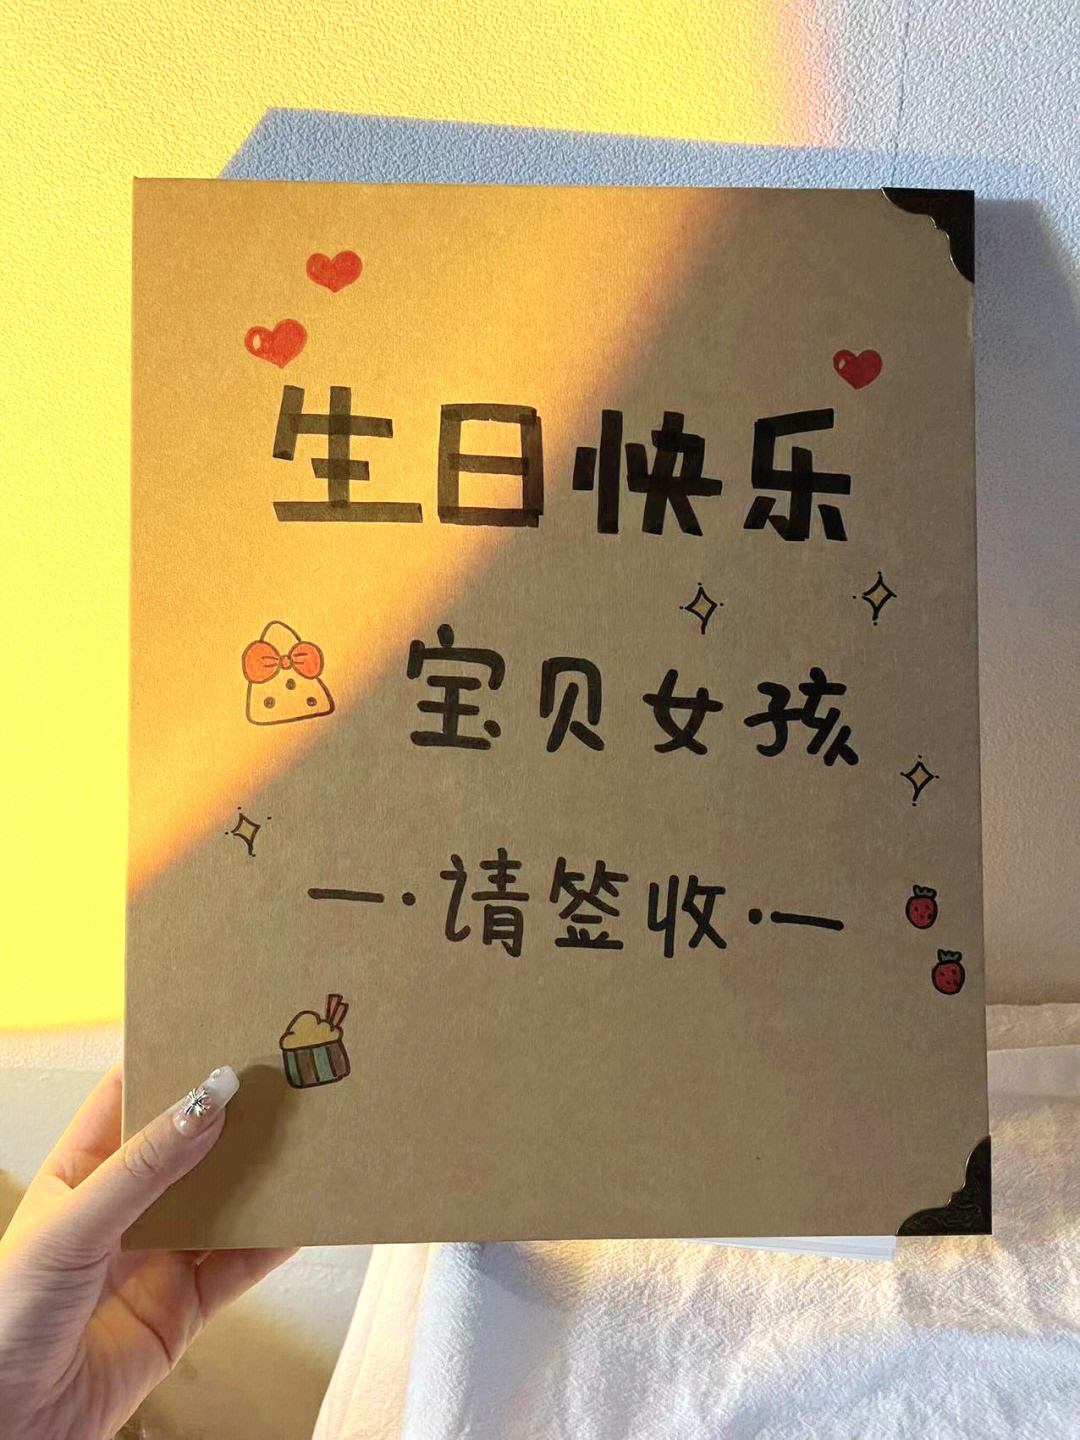 生日快乐
宝贝女孩
一·请签收·一